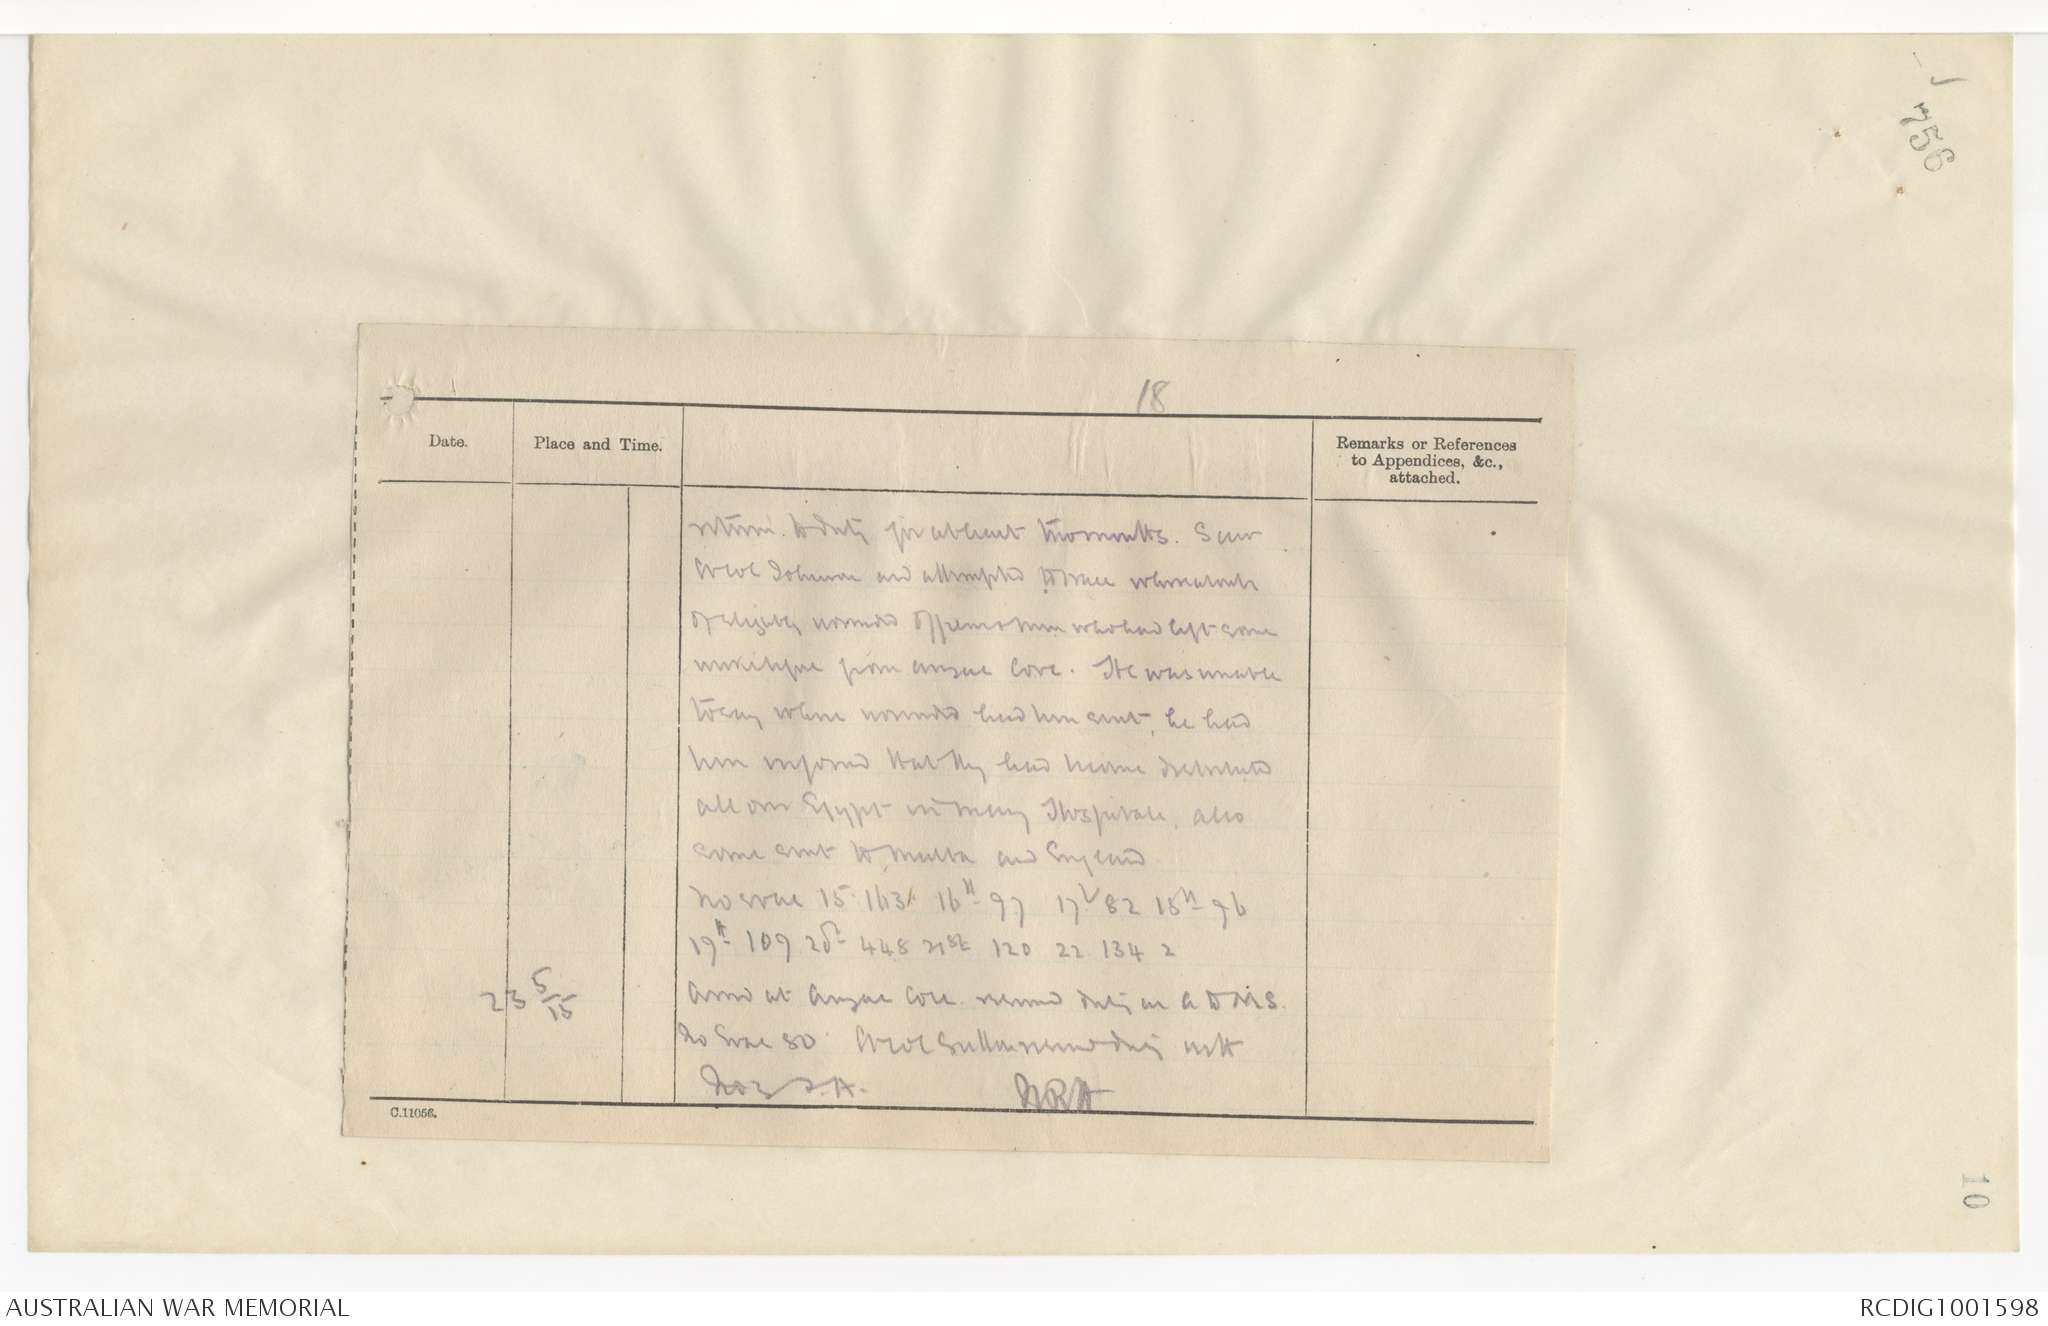 756
18
Date.
Place and Time.
Remarks or References
to Appendices, &c.,
attached.
return to duty for at least two months. Saw
Col Johnson and attempted to trace whereabouts
of slightly wounded officers & men who had left some
time from Anzac Cove. He was unable
to say where wounded had been sent, he had
been informed that they had become distributed
all over Egypt in many Hospitals, also
some sent to Malta and England
No evac 15 163 16th 97 17 82 18th 96
19th 109 20th 448 21st 120 22 134 2
23 5/15
Arrived at Anzac Cove resumed duty as A D M S.
No Evac 80 resumed duty with
No 3 F.A.
C.11056.
10
AUSTRALIAN WAR MEMORIAL
RCDIG1001598